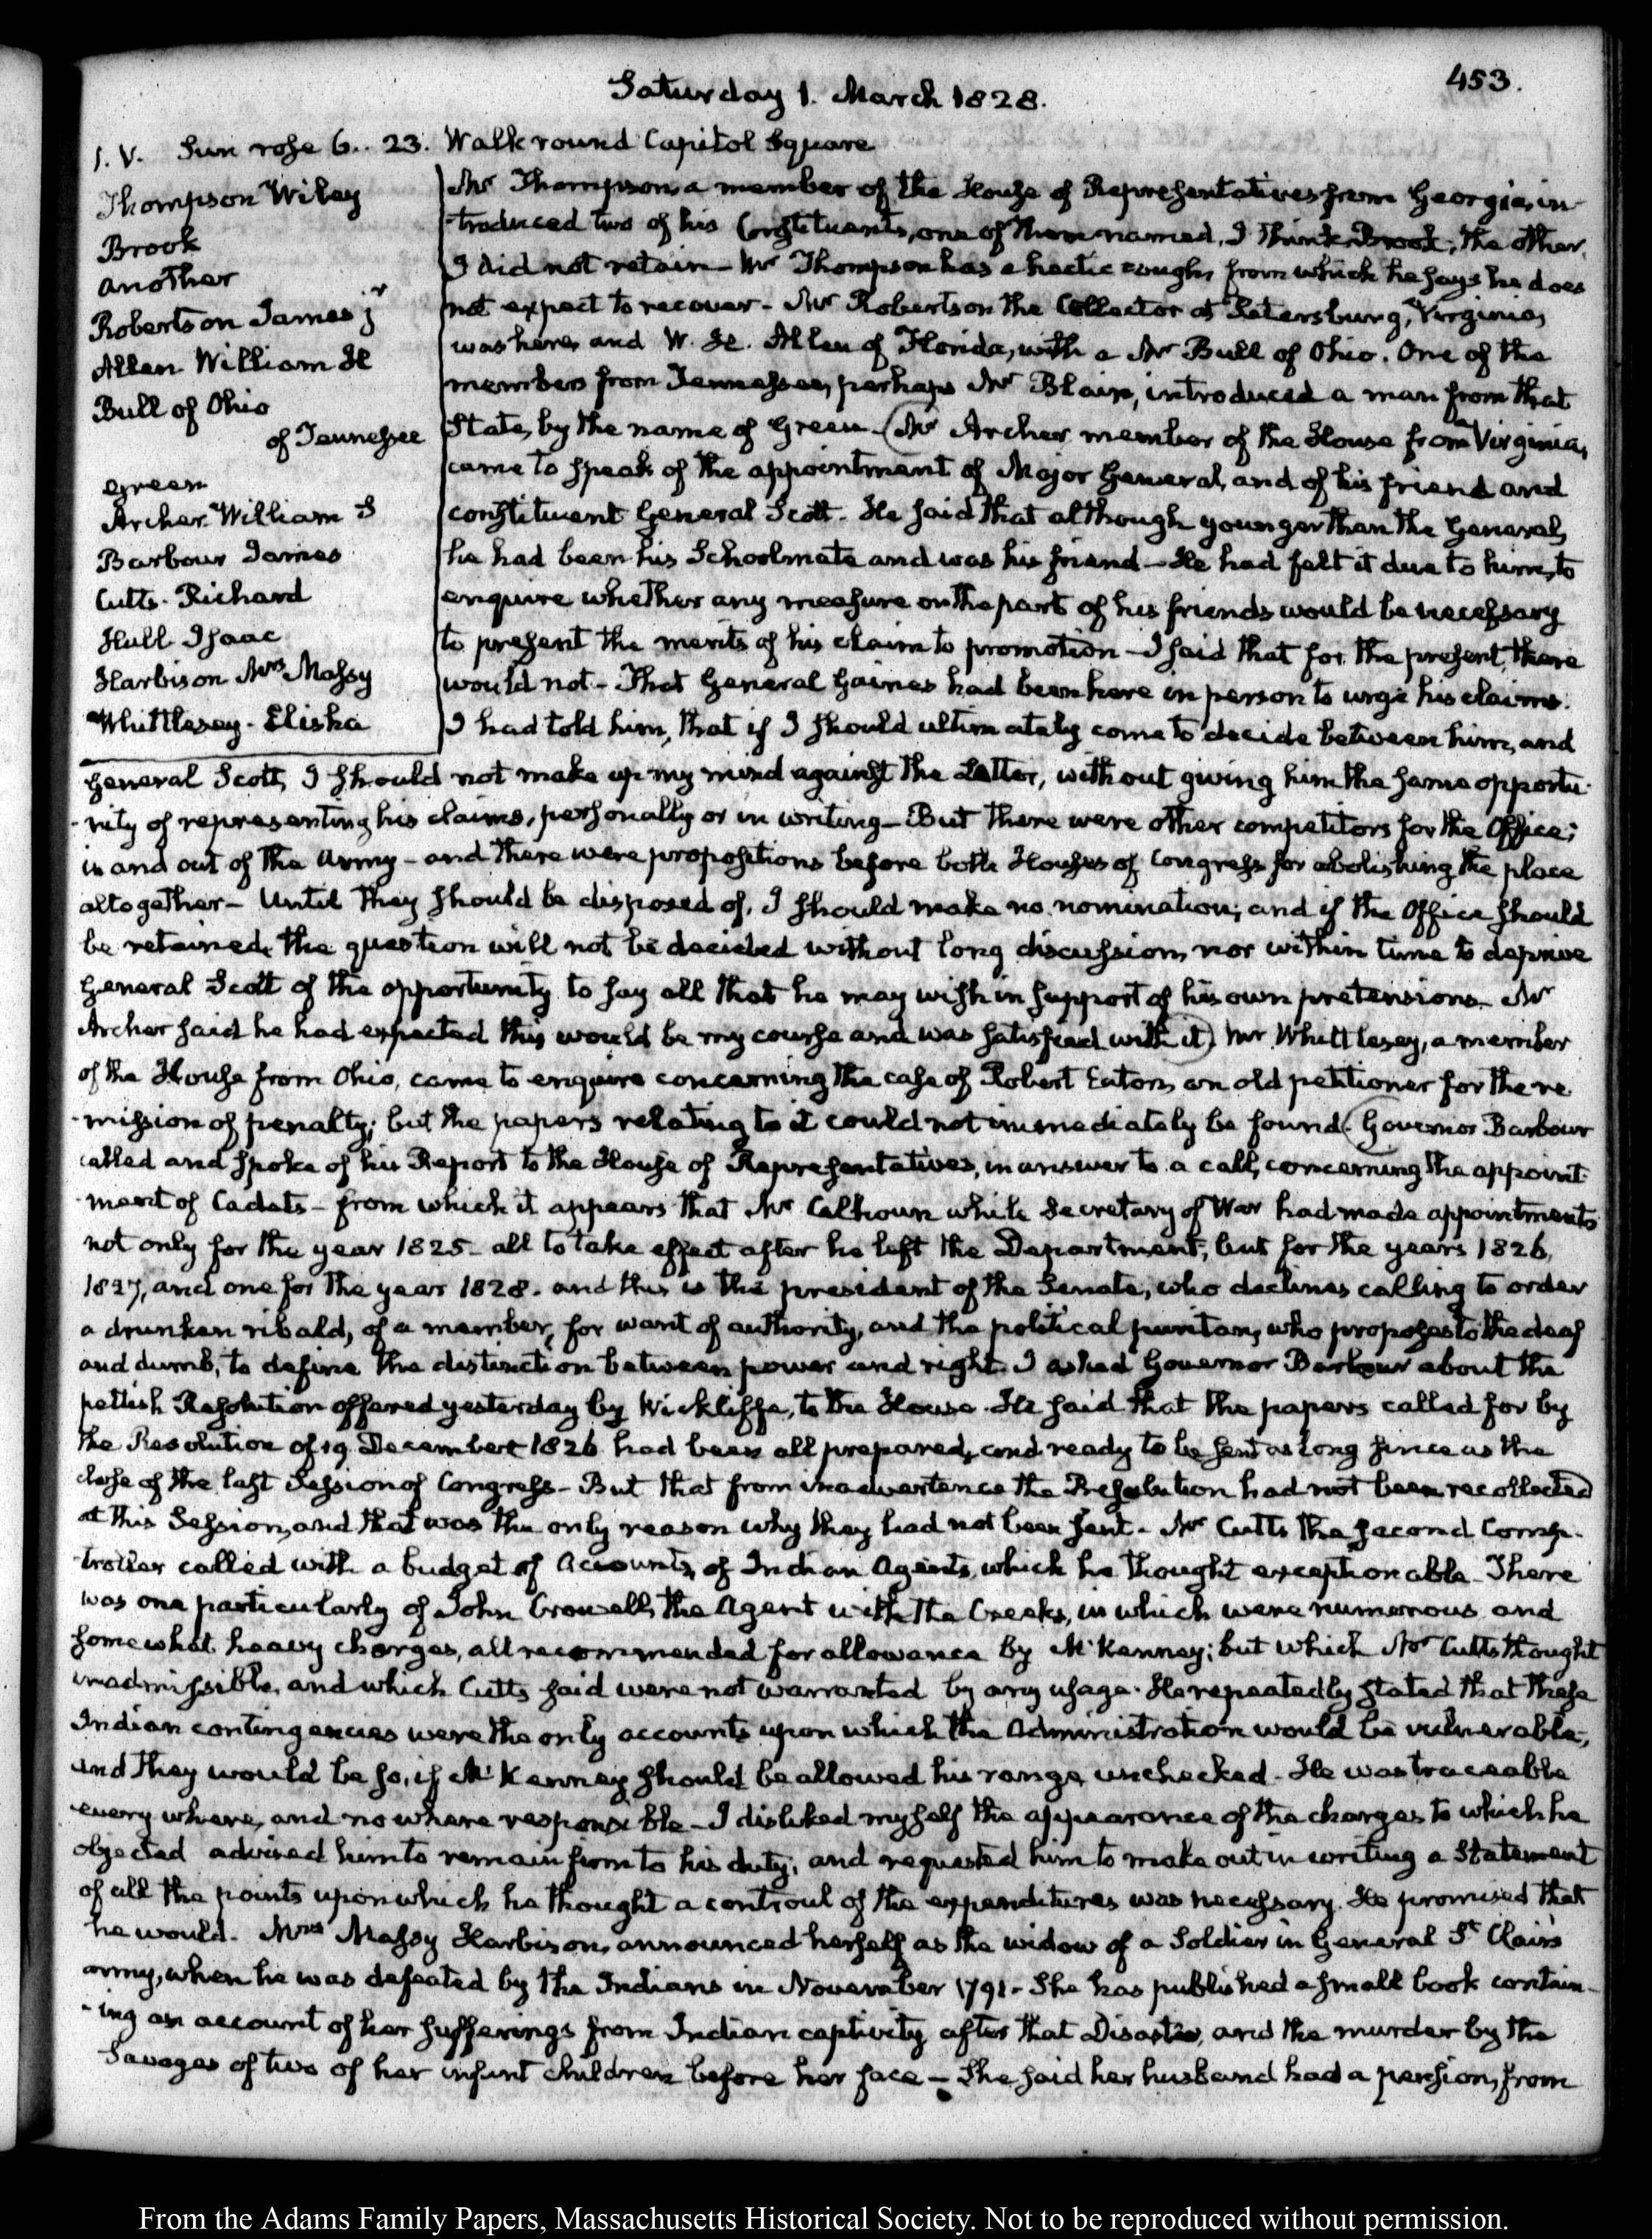 453.
Saturday 1. March 1828.
I. V. Sun rose 6.. 23. Walk round Capitol Square
Thompson Wiley
Brook
another
Robertson James jr
Allen William H
Bull of Ohio
of Tennessee
Green
Archer William S
Barbour James
Cutts. Richard
Hull Isaac
Harbison Mrs Massy
Whittlesey. Elisha
Mr Thompson, a member of the House of Representatives from Georgia, in-
-troduced two of his Constituents, one of them named, I think Brook; the other,
I did not retain — Mr Thompson has a hectic cough, from which he says he does
not expect to recover — Mr Robertson the Collector at Petersburg, Virginia,
was here, and W. H. Allen of Florida, with a Mr Bull of Ohio. One of the
members from Tennessee, perhaps Mr Blair, introduced a man from that
State, by the name of Green — (Mr Archer member of the House from Virginia,
came to speak of the appointment of Major General, and of his friend and
constituent General Scott. He said that although younger than the General,
he had been his Schoolmate and was his friend — He had felt it due to him, to
enquire whether any measure on the part of his friends would be necessary
to present the merits of his claim to promotion — I said that for the present, there
would not — That General Gaines had been here in person to urge his claims.
I had told him, that if I should ultimately come to decide between him, and
General Scott, I should not make up my mind against the latter, without giving him the same opportu-
-nity of representing his claims, personally or in writing — But there were other competitors for the Office;
in and out of the Army — and there were propositions before both Houses of Congress for abolishing the place
altogether — Until they should be disposed of, I should make no nomination; and if the Office should
be retained, the question will not be decided without long discussion, nor within time to deprive
General Scott of the opportunity to say all that he may wish in support of his own pretensions — Mr
Archer said he had expected this would be my course and was satisfied with it) Mr Whittlesey, a member
of the House from Ohio, came to enquire concerning the case of Robert Eaton, an old petitioner for the re
-mission of penalty; but the papers relating to it could not immediately be found. (Governor Barbour
called and spoke of his Report to the House of Representatives, in answer to a call, concerning the appoint-
-ment of Cadets — from which it appears that Mr Calhoun while Secretary of War had made appointments
not only for the year 1825 — all to take effect after he left the Department; but for the years 1826,
1827, and one for the year 1828. and this is the president of the Senate, who declines calling to order
a drunken ribald, of a member, for want of authority, and the political puritan, who proposes to the deaf
and dumb, to define the distinction between power and right. I asked Governor Barbour about the
pettish Resolution offered yesterday by Wickliffe, to the House. He said that the papers called for by
the Resolution of 19 December 1826 had been all prepared, and ready to be sent as long since as the
close of the last Session of Congress — But that from inadvertence the Resolution had not been recollected
at this Session, and that was the only reason why they had not been sent — Mr Cutts the second Comp-
-troller called with a budget of Accounts, of Indian Agents, which he thought exceptionable — There
was one particularly of John Crowell, the Agent with the Creeks, in which were numerous and
somewhat heavy charges, all recommended for allowance by McKenney; but which Mr Cutts thought
inadmissible, and which Cutts said were not warranted by any usage. He repeatedly stated that these
Indian contingencies were the only accounts upon which the Administration would be vulnerable;
and they would be so, if McKenney should be allowed his range, unchecked — He was traceable
every where, and no where responsible — I disliked myself the appearance of the charges to which he
objected advised him to remain firm to his duty, and requested him to make out in writing a Statement
of all the points upon which he thought a controul of the expenditures was necessary. He promised that
he would. Mrs Massy Harbison, announced herself as the widow of a Soldier in General St Clair's
army, when he was defeated by the Indians in November 1791 — She has published a small book contain-
-ing an account of her sufferings from Indian captivity after that Disaster, and the murder by the
Savages of two of her infant children before her face — She said her husband had a pension, from
From the Adams Family Papers, Massachusetts Historical Society. Not to be reproduced without permission.